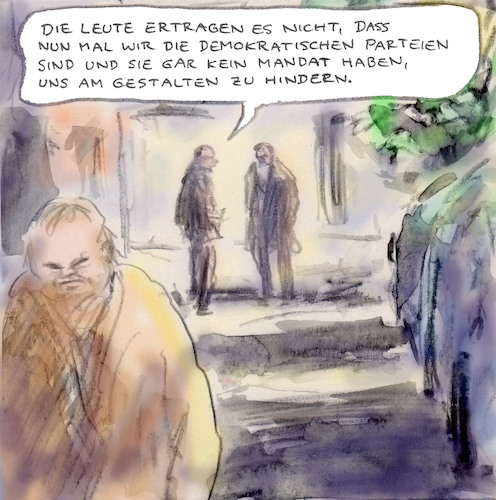 DIE LEUTE ERTRAGEN ES NICHT, DASS
NUN MAL WIR DIE DEMOKRATISCHEN PARTEIEN
SIND UND SIE GAR KEIN MANDAT HABEN,
UNS AM GESTALTEN ZU HINDERN.